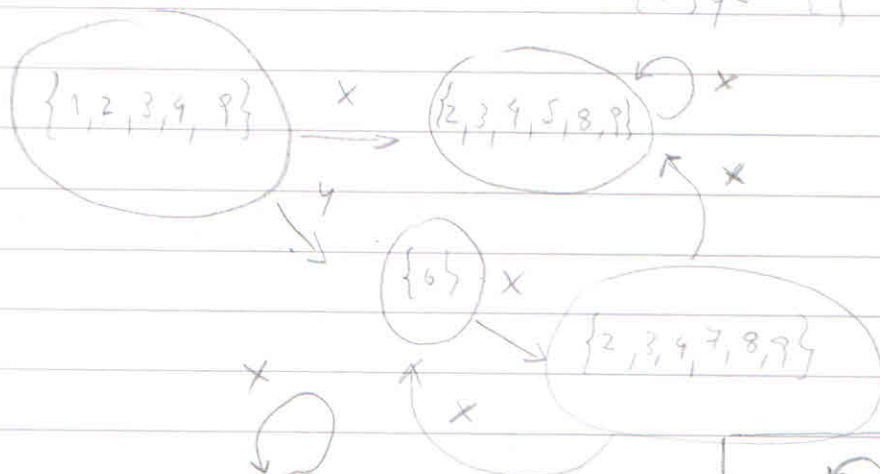 {1,2,3,4, 9}
x
{2,3,4,5,8,9}
x
y
x
{6}
x
{2,3,4,7,8,9}
x
x